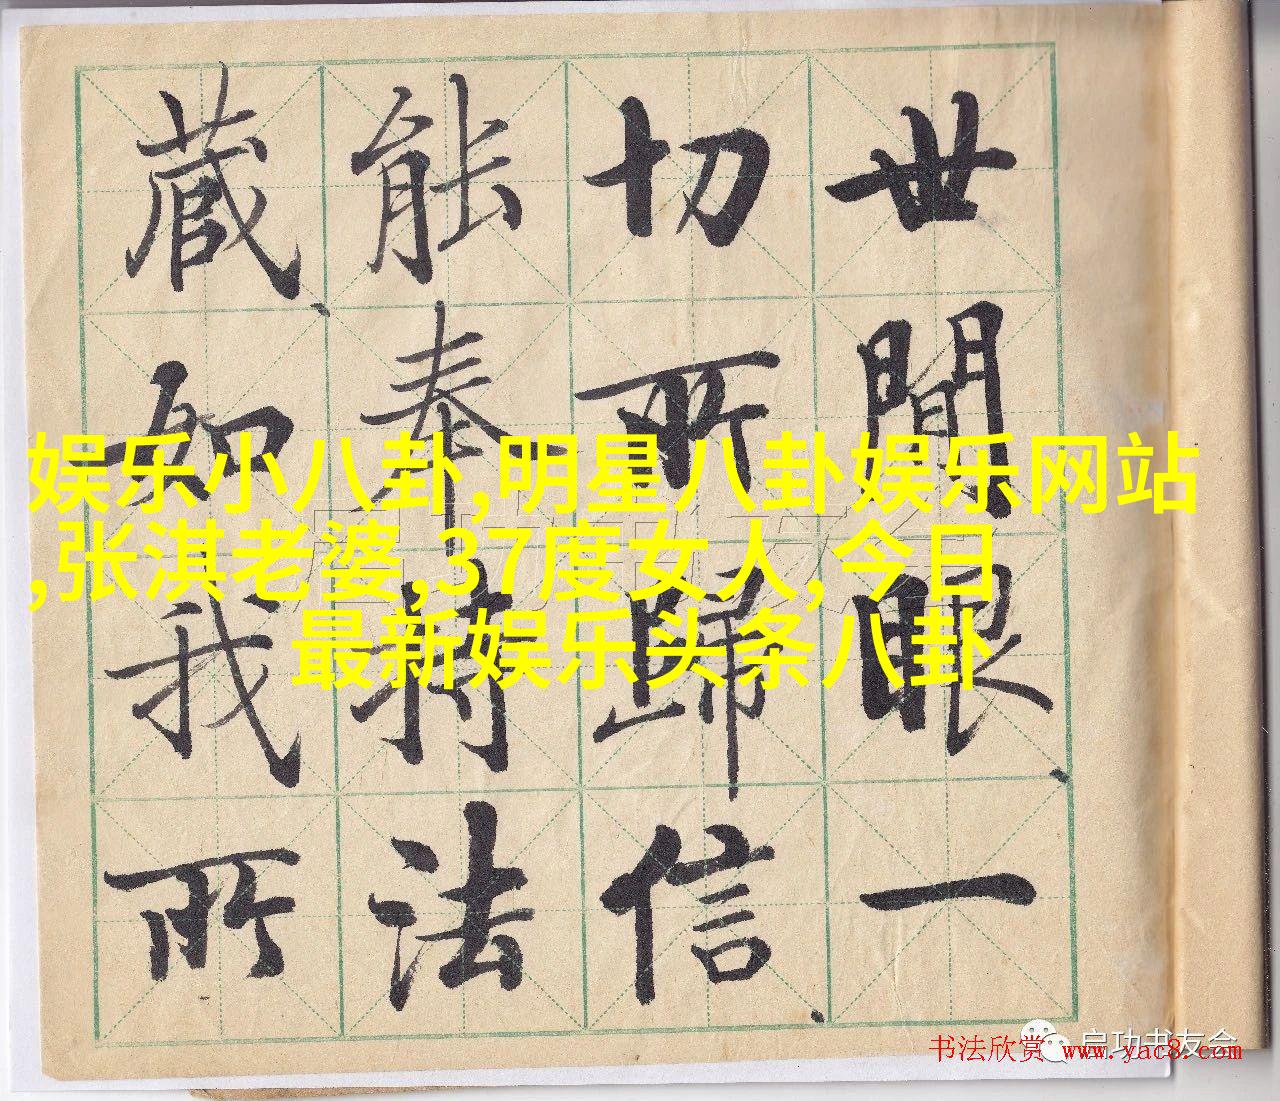 世間眼一
切所歸信
能奉持法
藏如我所
娱乐小八卦,明星八卦娱乐网站
,张淇老婆,37度女人,今日
最新娱乐头条八卦
启功书友会
启功书友会
书法欣赏 www.yac8.com